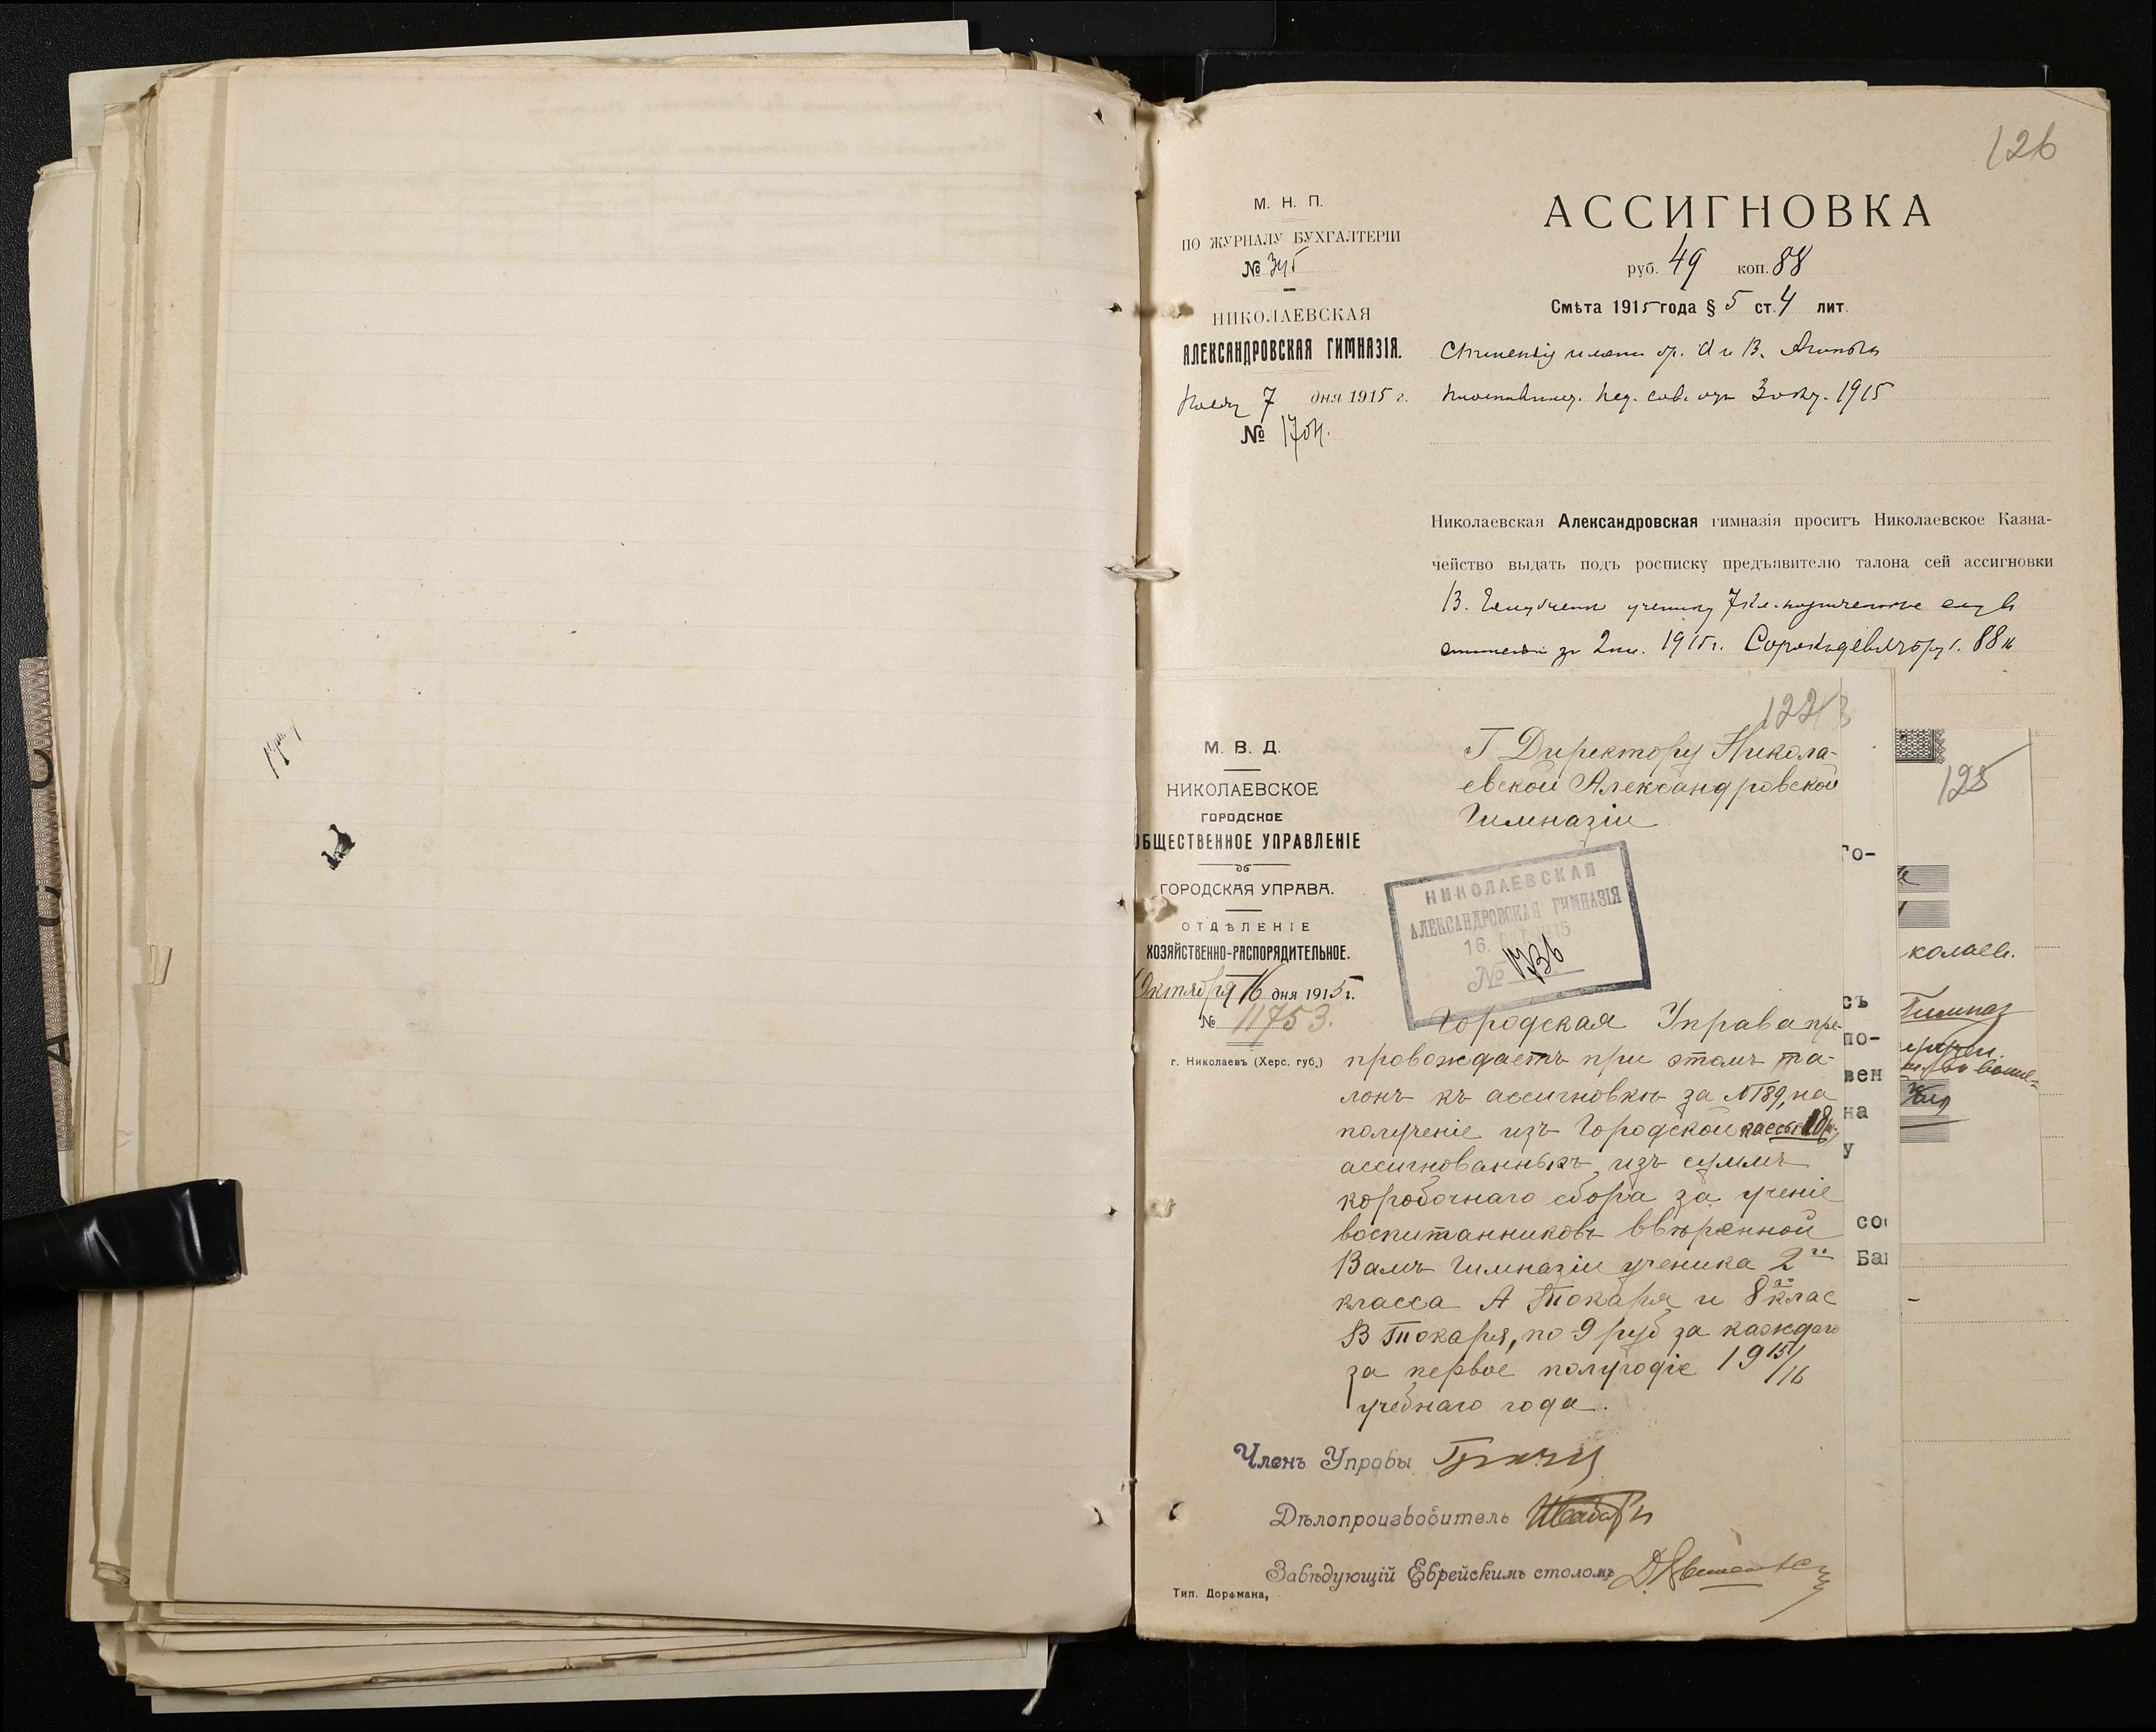 126
М. Н. П.
ПО ЖУРНАЛУ БУХГАЛТЕРІИ
№
НИКОЛАЕВСКАЯ
АЛЕКСАНДРОВСКАЯ ГИМНАЗІЯ.
7 дня 1915 г.
№
АССИГНОВКА
руб. 49 коп. 88
Смѣта 1915 года § 5 ст. 4 лит.
имени бр. и В.
пед. сов. 3 1915
Николаевская Александровская гимназія проситъ Николаевское Казна-
чейство выдать подъ росписку предъявителю талона сей ассигновки
В. ученику 7 кл. назначенное ему
за 2 1915 г. Сорокъ девять руб. 88 к
М. В. Д.
НИКОЛАЕВСКОЕ
ГОРОДСКОЕ
ОБЩЕСТВЕННОЕ УПРАВЛЕНІЕ
ГОРОДСКАЯ УПРАВА.
ОТДѢЛЕНІЕ
ХОЗЯЙСТВЕННО-РАСПОРЯДИТЕЛЬНОЕ.
Октября 16 дня 1915 г.
№ 11753.
г. Николаевъ (Херс. губ.)
Г Директору Никола-
евской Александровской
Гимназіи
НИКОЛАЕВСКАЯ
АЛЕКСАНДРОВСКАЯ ГИМНАЗІЯ
16. 1915
№ 1736
Городская Управа пре-
провождаетъ при этомъ та-
лонъ къ ассигновкѣ за № 789, на
полученіе изъ Городской кассы 18 р.
ассигнованныхъ изъ суммъ
коробочнаго сбора за ученіе
воспитанниковъ ввѣренной
Вамъ Гимназіи ученика 2го
класса А Токаря и 8го клас
В Токаря, по 9 руб за каждаго
за первое полугодіе 1915/16
учебнаго года.
Членъ Управы
Дѣлопроизводитель
Завѣдующій Еврейскимъ столомъ
Тип. Дорфмана,
го-
съ
по-
вен
на
у
со
Ба
125
колаев.
Гимназ